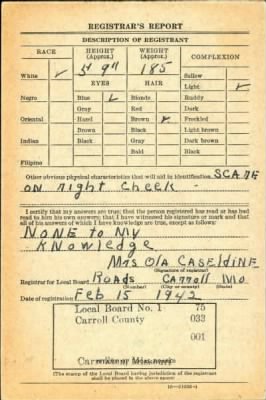 REGISTRAR'S REPORT
DESCRIPTION OF REGISTRANT
RACE HEIGHT (Approx.) WEIGHT (Approx.) COMPLEXION
5' 9" 185
White ✓ Sallow
EYES HAIR Light ✓
Negro Blue ✓ Blonde Ruddy
Gray Red Dark
Oriental Hazel Brown ✓ Freckled
Brown Black Light brown
Indian Black Gray Dark brown
Bald Black
Filipino
Other obvious physical characteristics that will aid in identification SCARE
on right cheek
I certify that my answers are true; that the person registered has read or has had
read to him his own answers; that I have witnessed his signature or mark and that
all of his answers of which I have knowledge are true, except as follows:
NONE to My
Knowledge
Mrs Ola CASELDINE
(Signature of registrar)
Registrar for Local Board Roads CARROLL Mo
(Number) (City or county) (State)
Date of registration Feb 15 1942
Local Board No. 1 75
Carroll County 033
001
(The stamp of the Local Board having jurisdiction of the registrant
shall be placed in the above space)